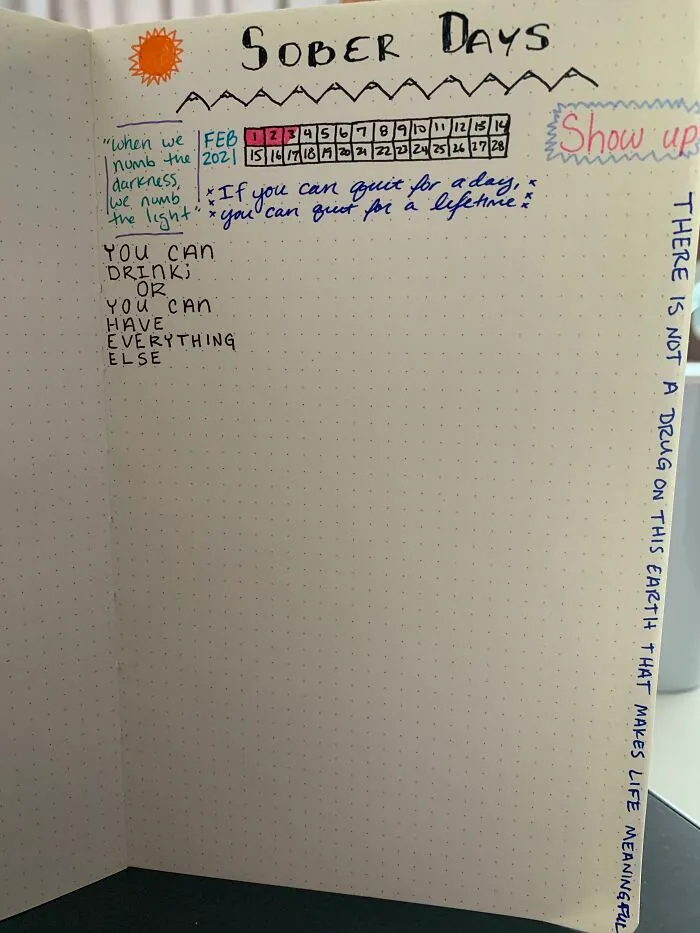 SOBER DAYS
"When we
numb the
darkness,
we numb
the light"
FEB
2021
1 2 3 4 5 6 7 8 9 10 11 12 13 14
15 16 17 18 19 20 21 22 23 24 25 26 27 28
If you can quit for a day,
you can quit for a lifetime
Show up
YOU CAN
DRINK;
OR
YOU CAN
HAVE
EVERYTHING
ELSE
THERE IS NOT A DRUG ON THIS EARTH THAT MAKES LIFE MEANINGFUL